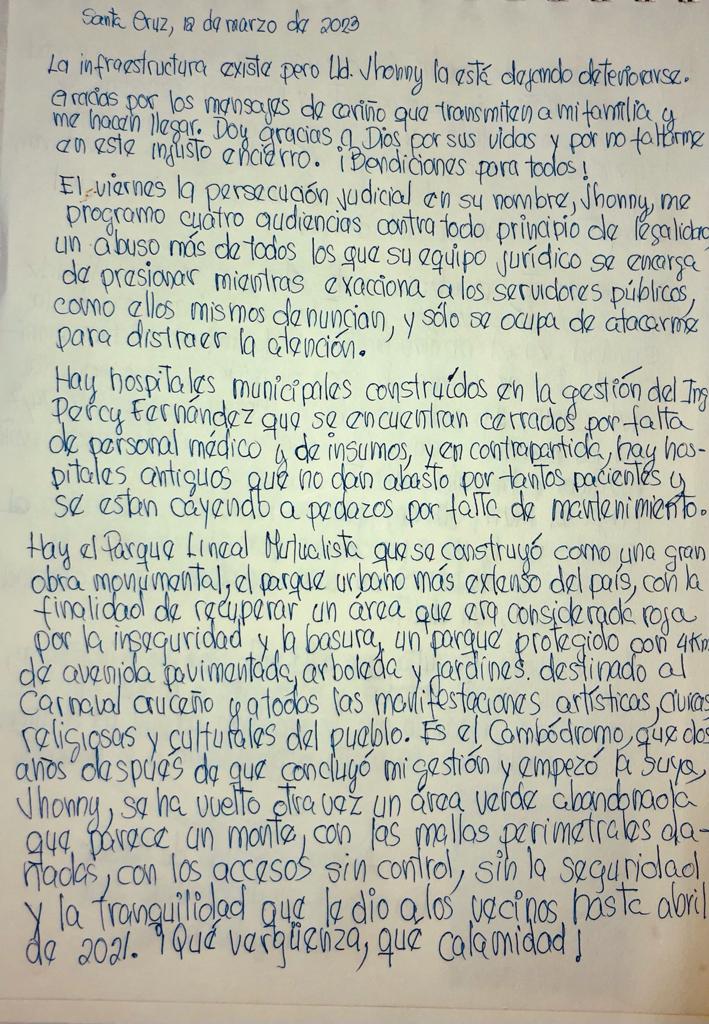 Santa Cruz, 12 de marzo de 2023
La infraestructura existe pero Ud. Jhonny la está dejando deteriorarse.
Gracias por los mensajes de cariño que transmiten a mi familia y
me hacen llegar. Doy gracias a Dios por sus vidas y por no faltarme
en este injusto encierro. ¡Bendiciones para todos!
El viernes la persecución judicial en su nombre, Jhonny, me
programo cuatro audiencias contra todo principio de legalidad
un abuso más de todos los que su equipo jurídico se encarga
de presionar mientras exacciona a los servidores públicos,
como ellos mismos denuncian, y sólo se ocupa de atacarme
para distraer la atención.
Hay hospitales municipales construídos en la gestión del Ing
Percy Fernández que se encuentran cerrados por falta
de personal médico y de insumos, y en contrapartida, hay hos-
pitales antiguos que no dan abasto por tantos pacientes y
se estan cayendo a pedazos por falta de mantenimiento.
Hay el Parque Lineal Mutualista que se construyó como una gran
obra monumental, el parque urbano más extenso del país, con la
finalidad de recuperar un área que era considerada roja
por la inseguridad y la basura, un parque protegido con 4Km
de avenida pavimentada, arboleda y jardines. destinado al
Carnaval cruceño y a todas las manifestaciones artísticas, cívicas
religiosas y culturales del pueblo. Es el Cambódromo, que dos
años después de que concluyó mi gestión y empezó la suya,
Jhonny, se ha vuelto otra vez un área verde abandonada
que parece un monte, con las mallas perimetrales da-
ñadas, con los accesos sin control, sin la seguridad
y la tranquilidad que le dio a los vecinos hasta abril
de 2021. ¡Qué vergüenza, qué calamidad!